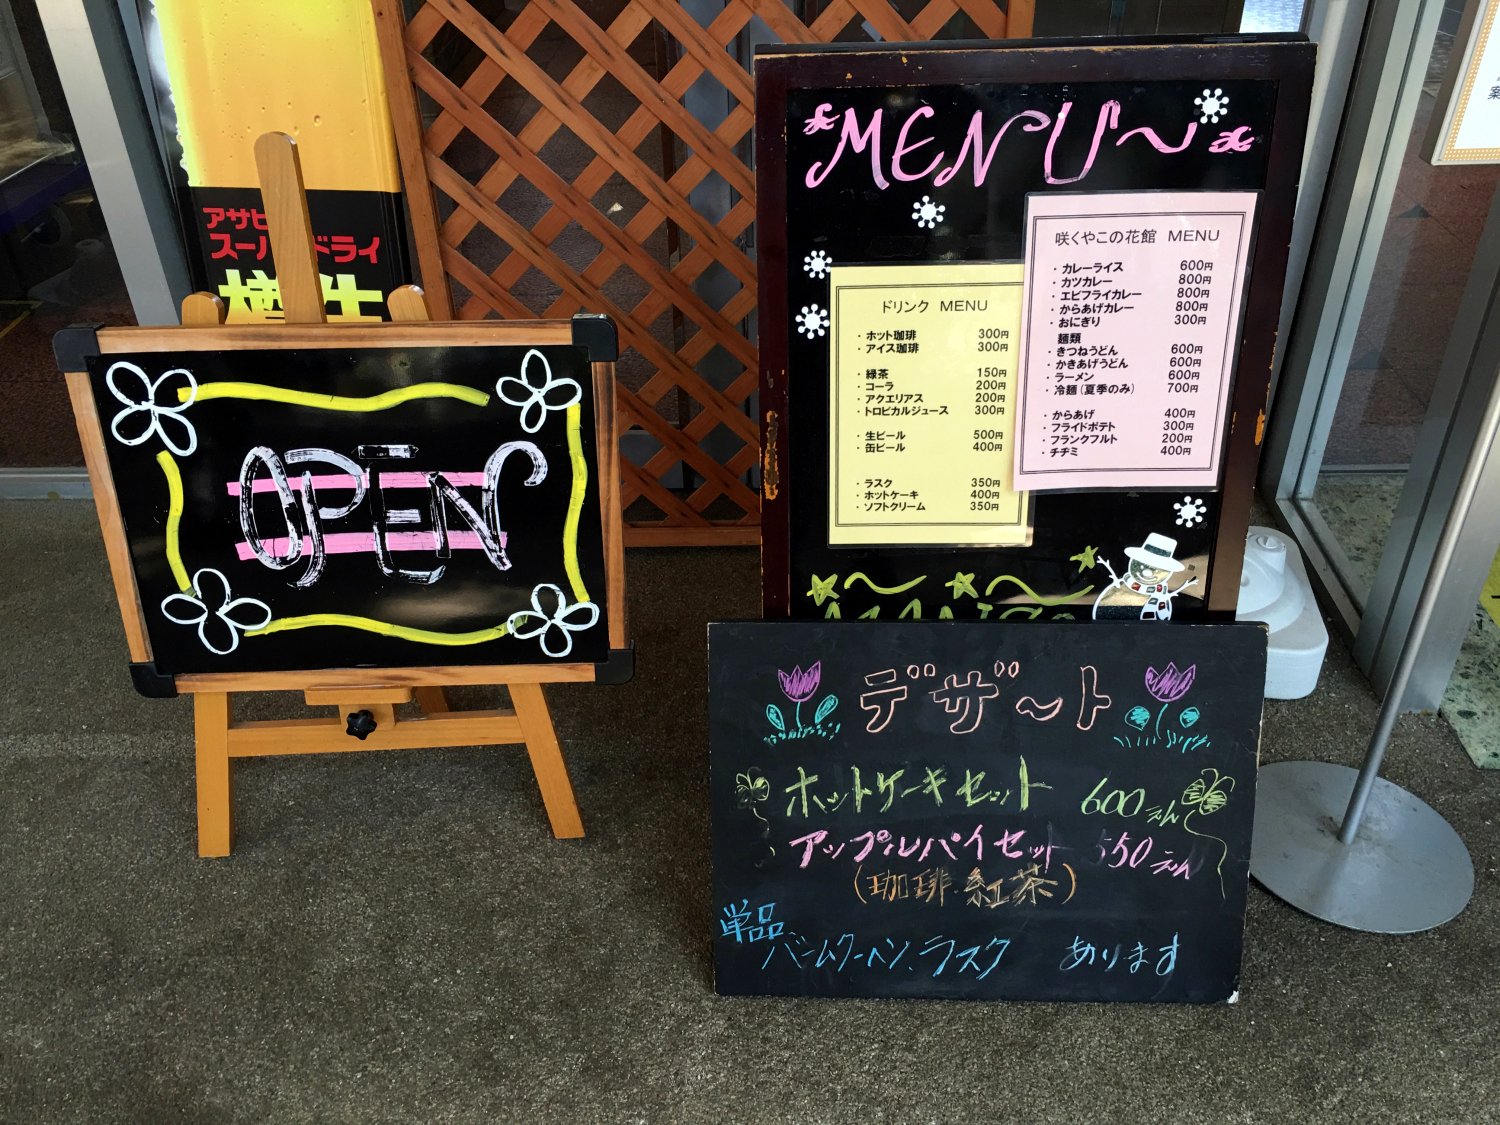 アサヒ
スーパードライ
樽生
OPEN
MENU～
ドリンク MENU
・ホット珈琲 300円
・アイス珈琲 300円
・緑茶 150円
・コーラ 200円
・アクエリアス 200円
・トロピカルジュース 300円
・生ビール 500円
・缶ビール 400円
・ラスク 350円
・ホットケーキ 400円
・ソフトクリーム 350円
咲くやこの花館 MENU
・カレーライス 600円
・カツカレー 800円
・エビフライカレー 800円
・からあげカレー 800円
・おにぎり 300円
麺類
・きつねうどん 600円
・かきあげうどん 600円
・ラーメン 600円
・冷麺（夏季のみ） 700円
・からあげ 400円
・フライドポテト 300円
・フランクフルト 200円
・チヂミ 400円
デザート
ホットケーキセット 600えん
アップルパイセット 550えん
(珈琲.紅茶)
単品
バームクーヘン、ラスク あります
案